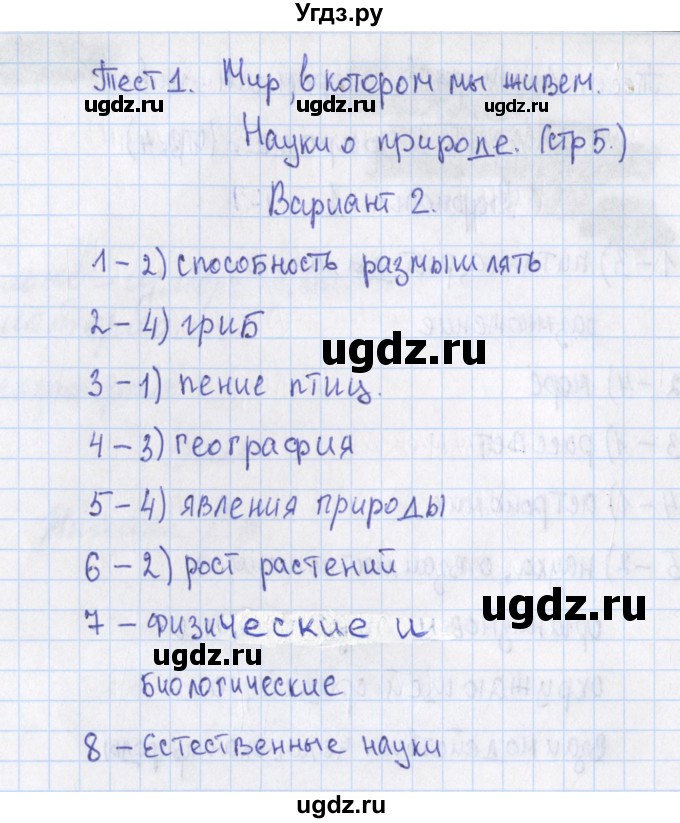 Угдз.ру
Тест 1. Мир, в котором мы живем.
ugdz.ru ugdz.ru ugdz.ru
Науки о природе. (стр 5.)
ugdz.ru
Вариант 2.
1 - 2) способность размышлять
2 - 4) гриб
ugdz.ru
3 - 1) пение птиц.
4 - 3) география
5 - 4) явления природы
6 - 2) рост растений
ugdz.ru
7 - Физические и
ugdz.ru
биологические
8 - Естественные науки
ugdz.ru
ugdz.ru